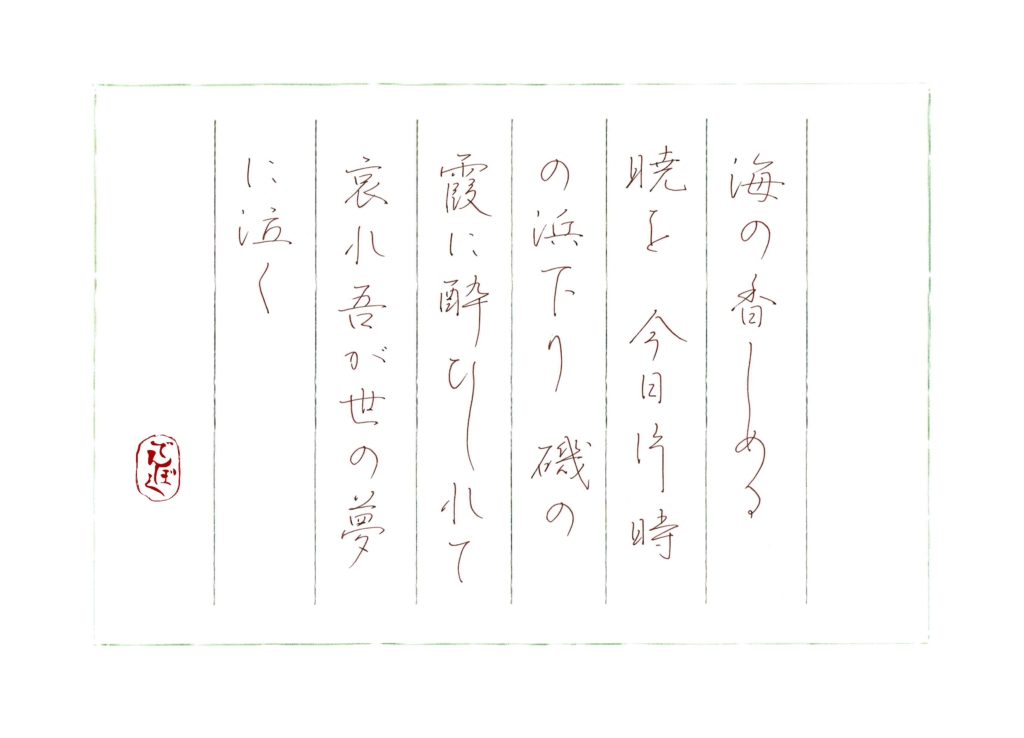 海の香しめる
暁を 今日片時
の浜下り 磯の
霞に酔ひしれて
哀れ吾が世の夢
に泣く
でんぼく